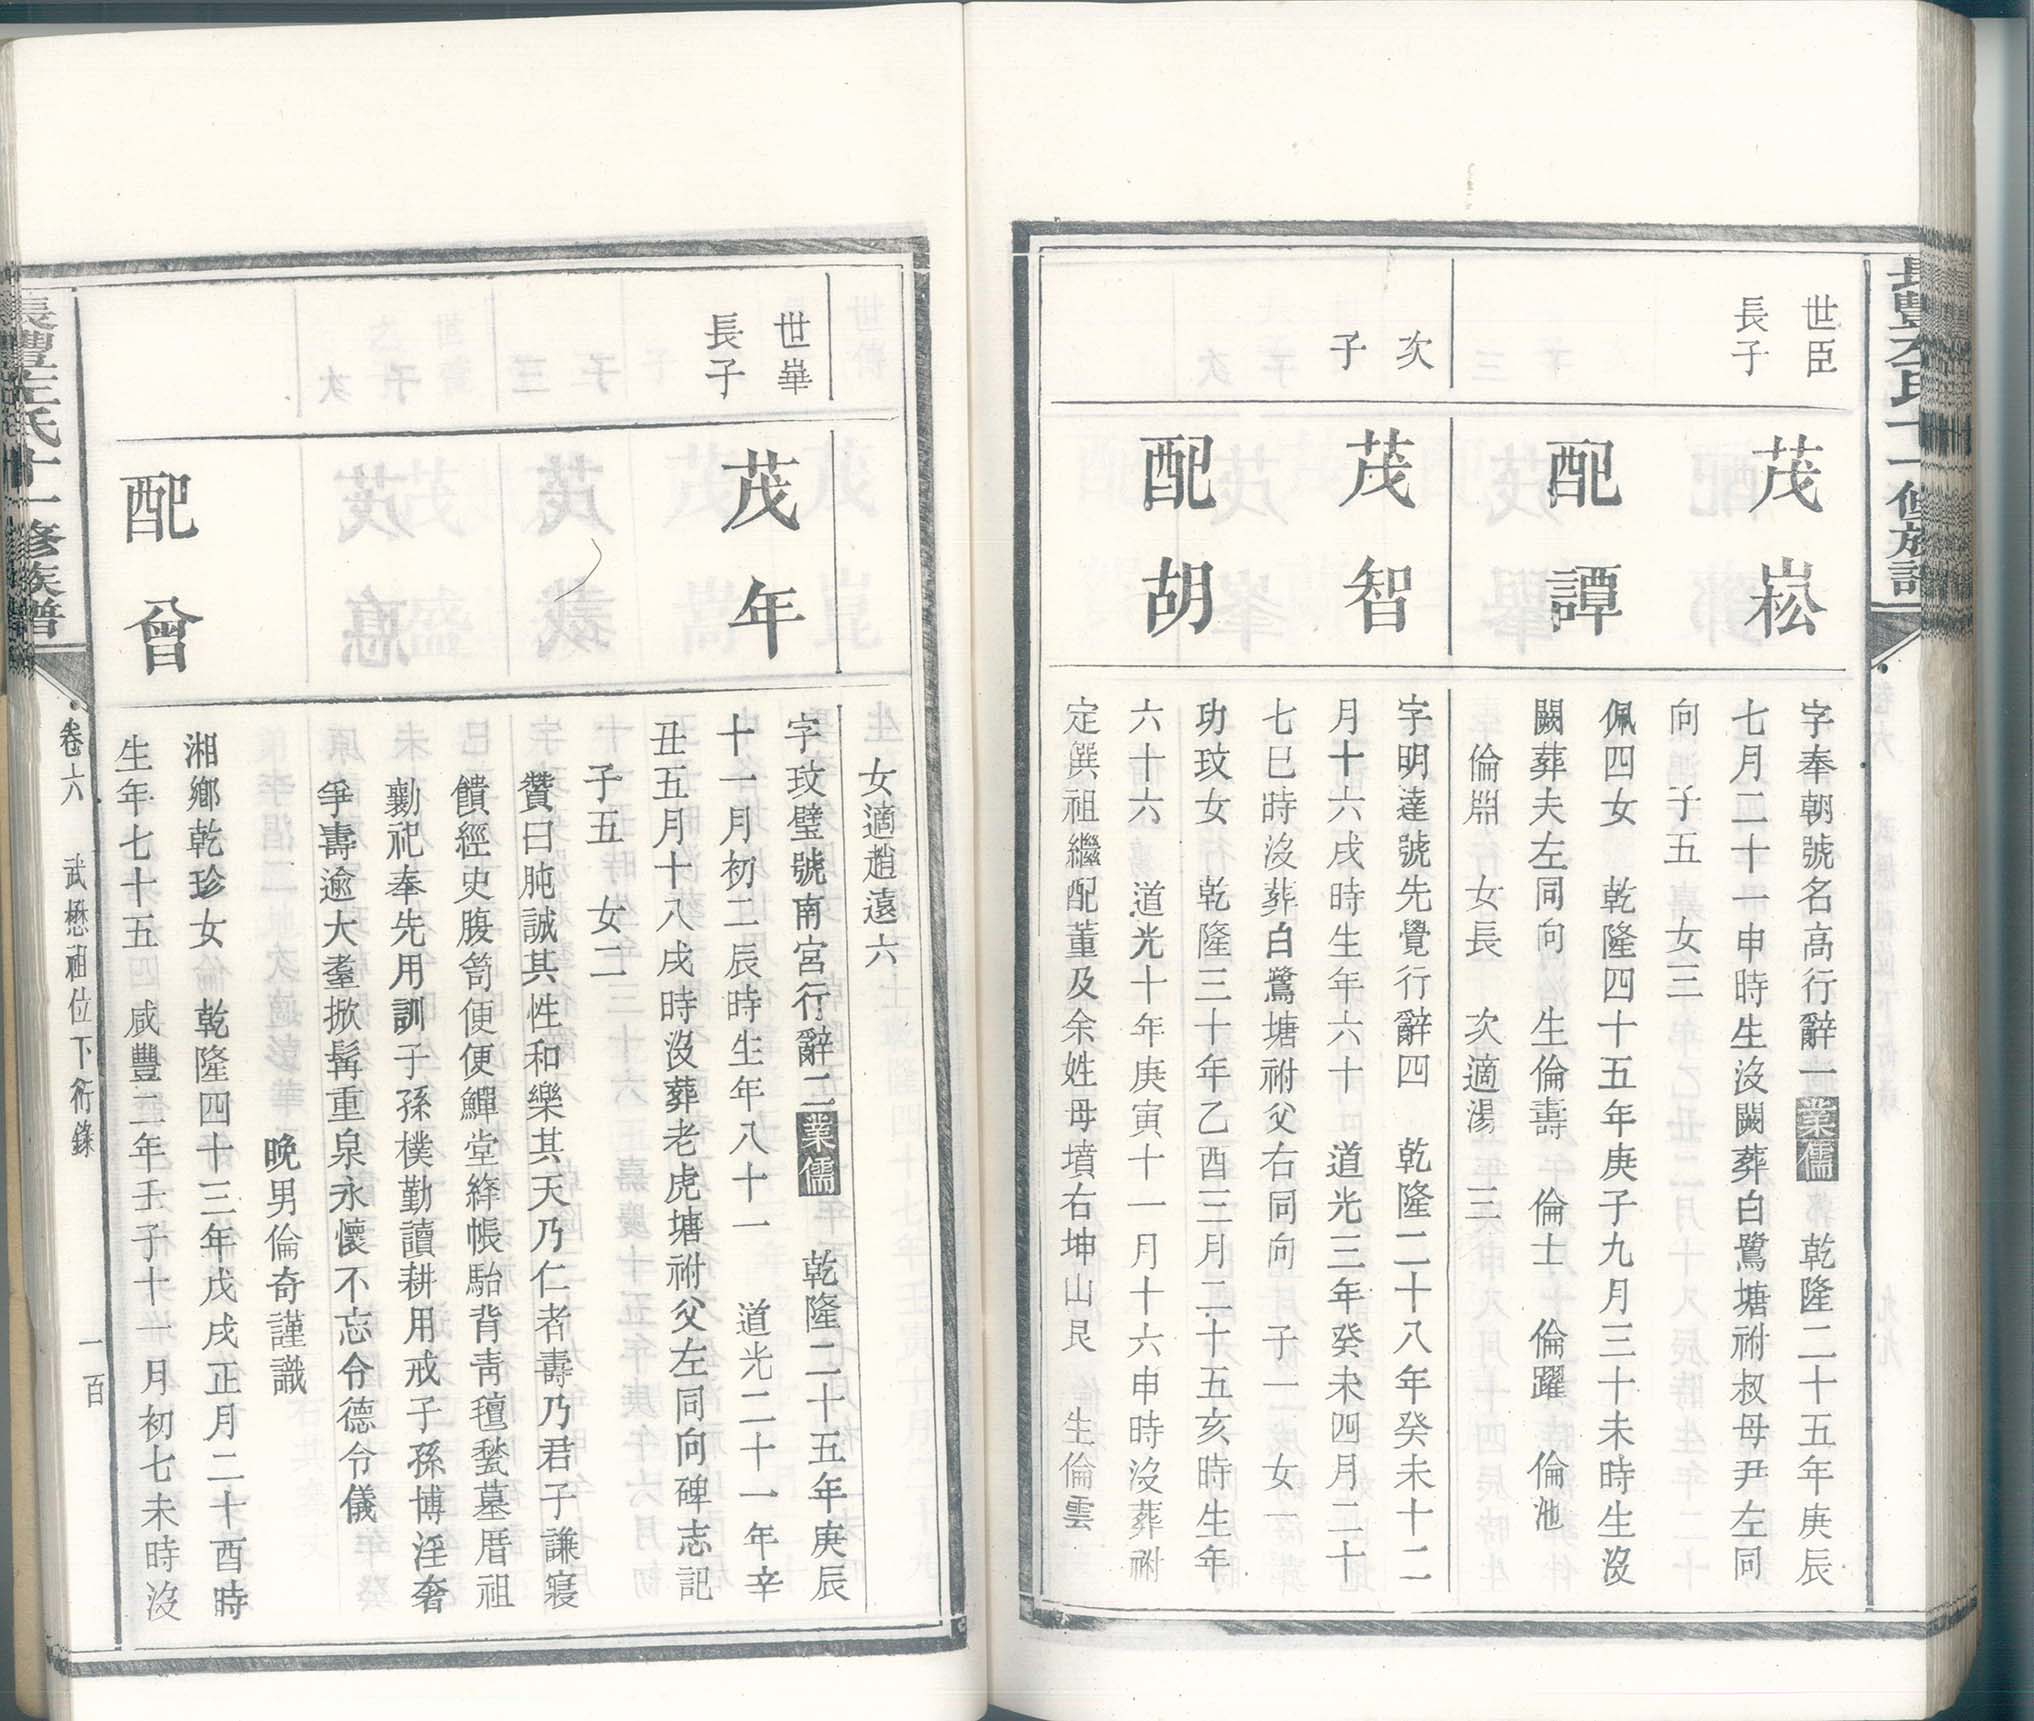 世臣
長子
茂崧
字奉朝號名高行辭一業儒 乾隆二十五年庚辰
七月二十一申時生沒闕葬白鷺塘祔叔母尹左同
向 子五 女三
配譚
佩四女 乾隆四十五年庚子九月三十未時生沒
闕葬夫左同向 生倫壽 倫士 倫躍 倫池
倫淵 女長 次適湯 三
次
子
茂智
字明達號先覺行辭四 乾隆二十八年癸未十二
月十六戌時生年六十 道光三年癸未四月二十
七巳時沒葬白鷺塘祔父右同向 子一 女一
配胡
功玟女 乾隆三十年乙酉三月二十五亥時生年
六十六 道光十年庚寅十一月十六申時沒葬祔
定僎祖繼配董及余姓母墳右坤山艮 生倫雲
女適趙遠六
世華
長子
茂年
字玟璧號南宮行辭二業儒 乾隆二十五年庚辰
十一月初二辰時生年八十一 道光二十一年辛
丑五月十八戌時沒葬老虎塘祔父左同向碑志記
子五 女二
贊曰肫誠其性和樂其天乃仁者壽乃君子謙寢
饋經史腹笥便便鱣堂絳帳駘背青氊甃墓厝祖
勷祀奉先用訓子孫樸勤讀耕用戒子孫博淫奢
爭壽逾大耋掀髯重泉永懷不忘令德令儀
晚男倫奇謹識
配曾
湘鄉乾珍女 乾隆四十三年戊戌正月二十酉時
生年七十五 咸豐二年壬子十一月初七未時沒
左氏十一修族譜
卷六 武懋祖位下衍錄 一百